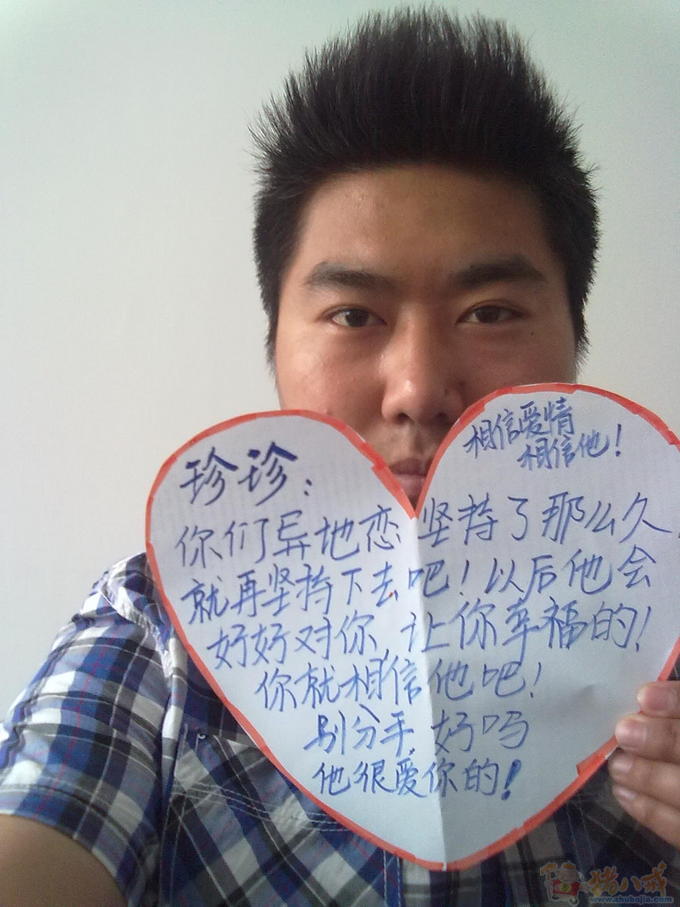 珍珍：
相信爱情
相信他！
你们异地恋坚持了那么久，
就再坚持下去吧！以后他会
好好对你，让你幸福的！
你就相信他吧！
别分手，好吗
他很爱你的！
猪八戒
www.zhubajie.com